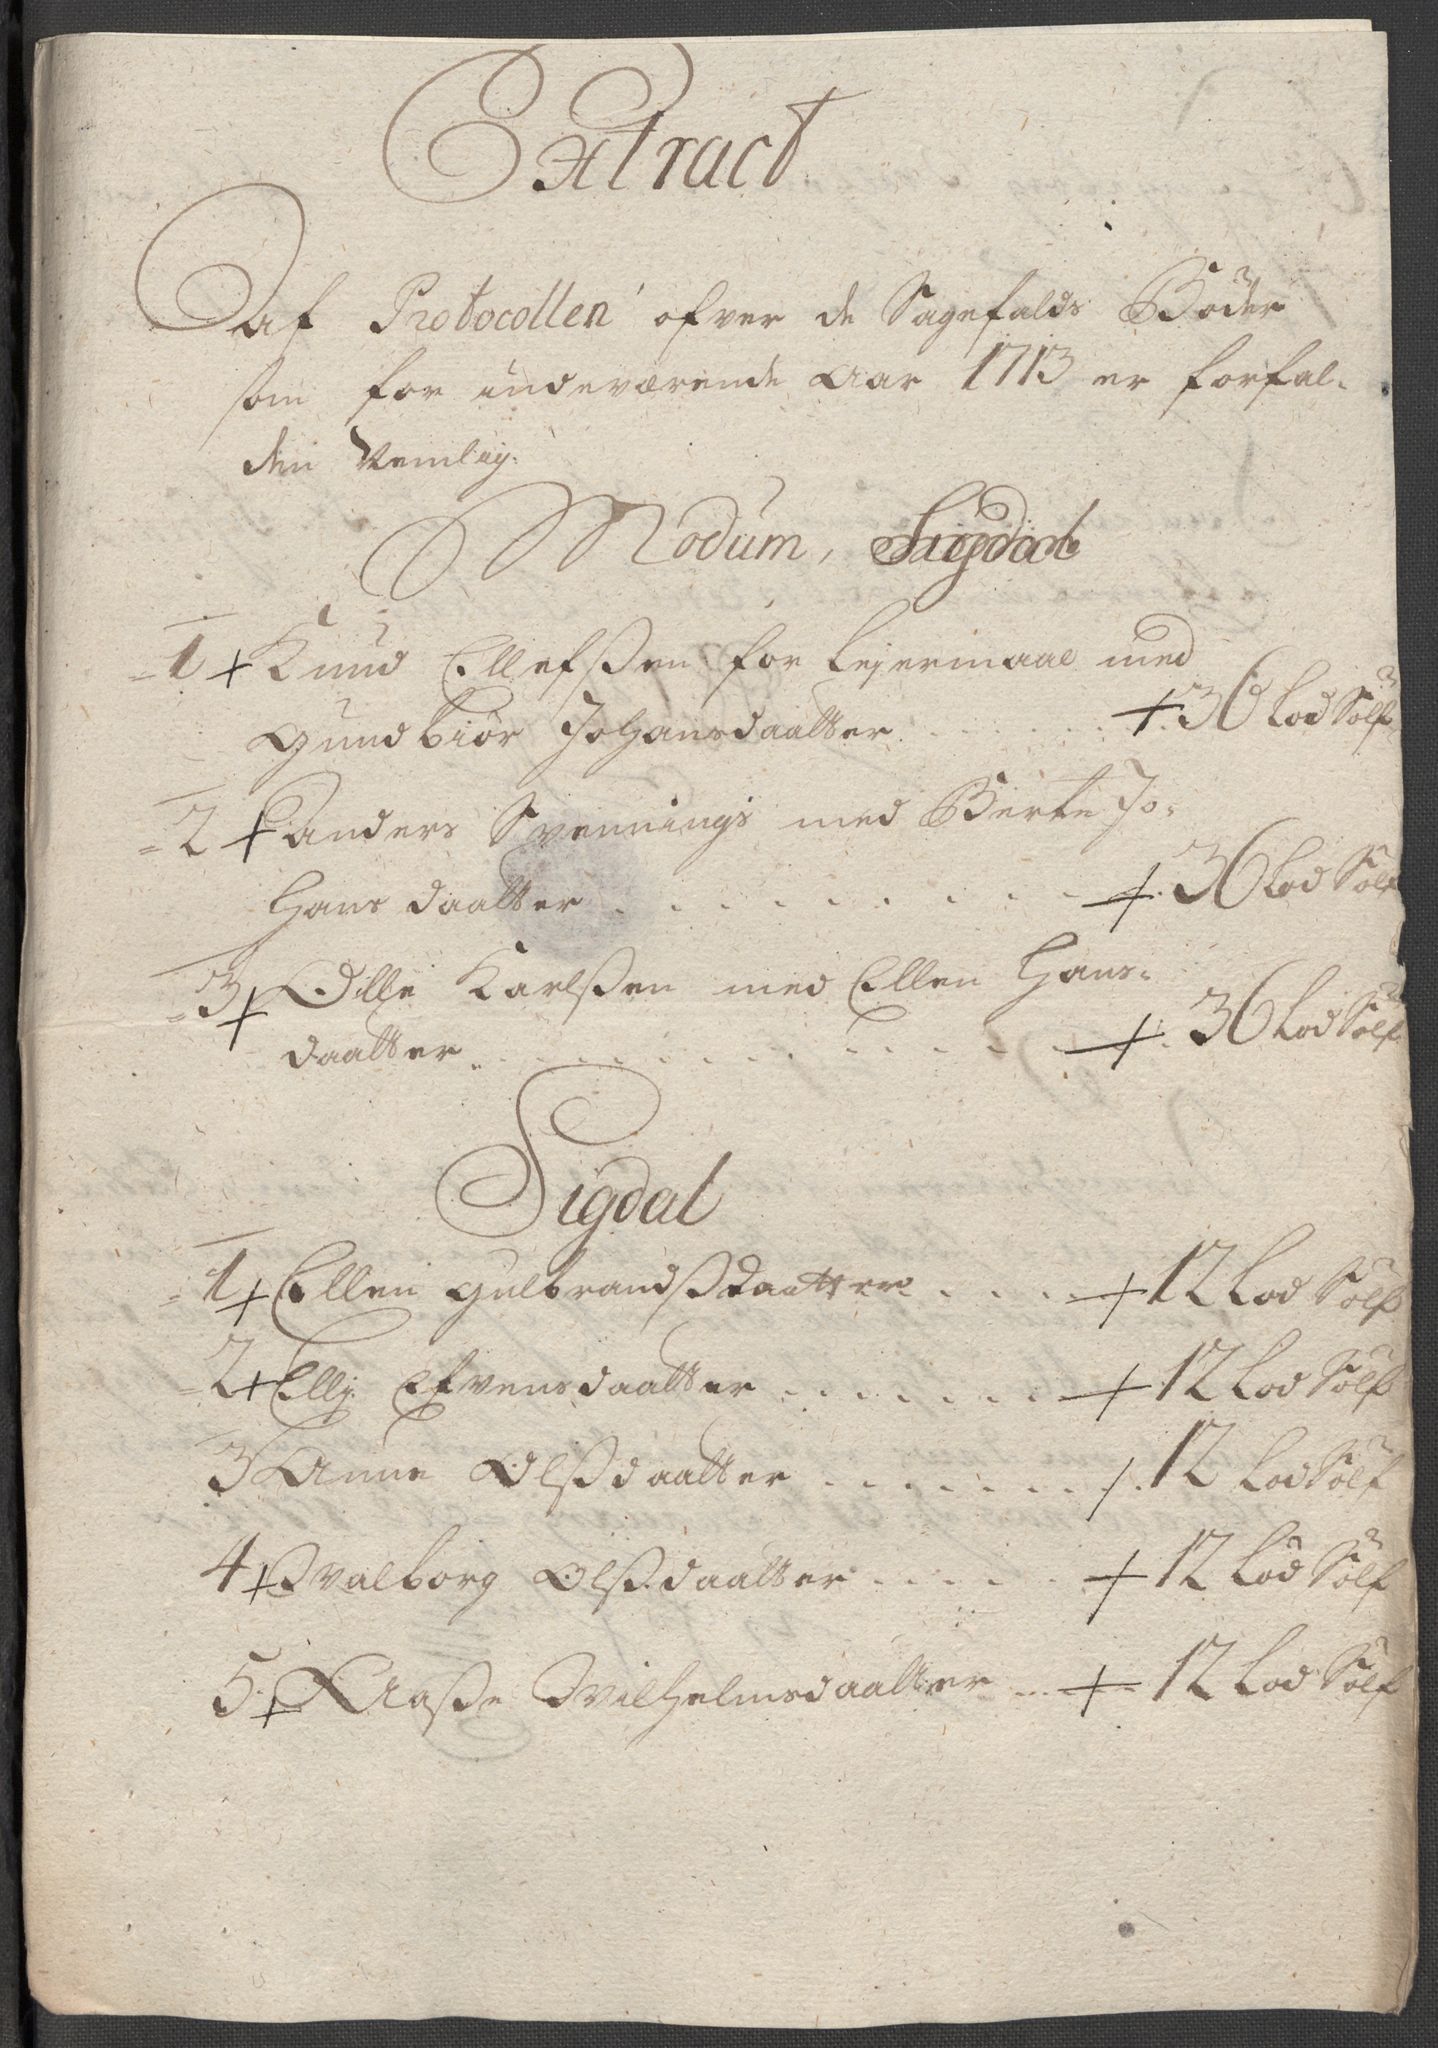 Extract
Af Protocollen ofver de Sagefalds Bøder
som for indeværende Aar 1713 er forfal-
den Nemlig.
Modum, Sigdal
1 + Knud Ellefsen for Lejermaal med
Gundbiør Johansdaatter . . . . . + 36 Lod Sølf
2 + Anders Svennings med Berte Jo-
hans daatter . . . . . . . . . + 36 Lod Sølf
3 + Karlsen med Ellen Hans-
daatter . . . . . . . . . . + 36 Lod Sølf
Sigdal
1 + Ellen Gulbrandsdaatter . . . . + 12 Lod Sølf
2 + Elli Efvensdaatter . . . . . . . + 12 Lod Sølf
3 Anne Olsdaatter . . . . . . . /. 12 Lod Sølf
4 + Valborg Olsdaatter . . . . . + 12 Lod Sølf
5 + Aase Wilhelmsdaatter . . + 12 Lod Sølf